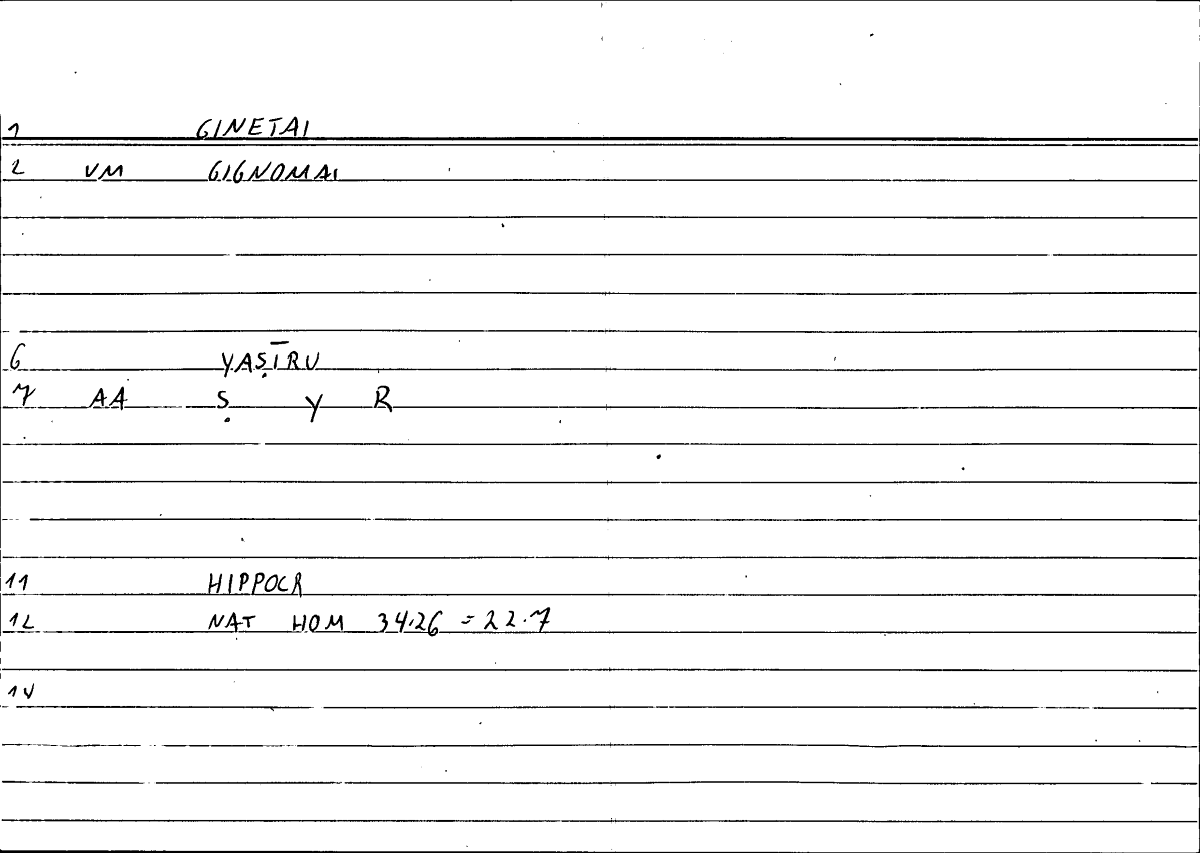 1 GINETAI
2 VM GIGNOMAI
6 YAṢĪRU
7 AA Ṣ Y R
11 HIPPOCR
12 NAT HOM 34.26 = 22.7
14